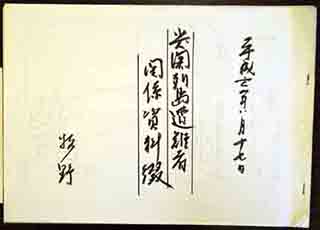 平成十一年八月十七日
尖閣列島遭難者
関係資料綴
牧野